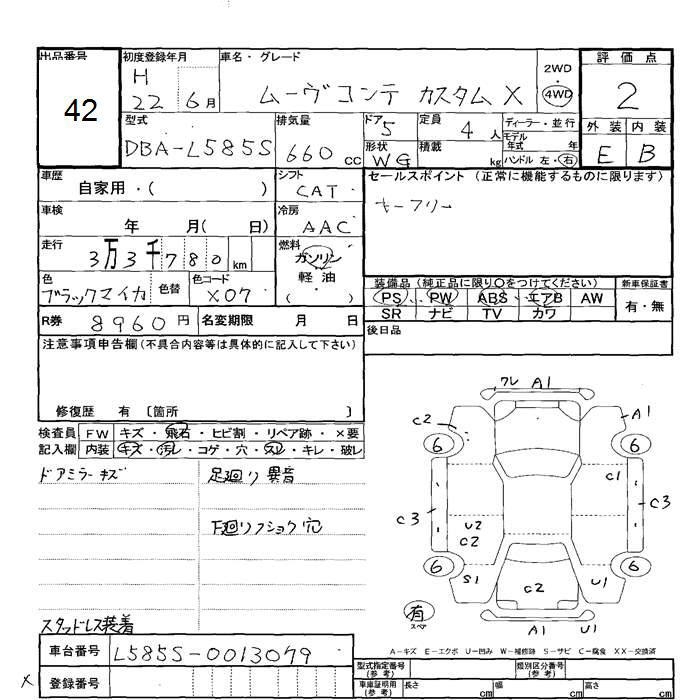 出品番号
42
初度登録年月
H
22 6月
車名・グレード
ムーヴコンテ カスタムX
2WD
・
4WD
評価点
2
外装 内装
E B
型式
DBA-L585S
排気量
660cc
ドア
5
形状
WG
定員
4人
積載
kg
ディーラー・並行
モデル
年式 年
ハンドル 左・右
車歴
自家用・( )
シフト
CAT
セールスポイント(正常に機能するものに限ります)
キーフリー
車検
年 月( 日)
冷房
AAC
走行
3万3千780km
燃料
ガソリン
軽油
( ・ )
色
ブラックマイカ
色替
色コード
X07
装備品(純正品に限り○をつけてください)
PS PW ABS エアB AW
SR ナビ TV カワ
新車保証書
有・無
R券
8960円
名変期限 月 日
後日品
注意事項申告欄(不具合内容等は具体的に記入して下さい)
修復歴 有 〔箇所 〕
検査員 FW キズ・飛石・ヒビ割・リペア跡・×要
記入欄 内装 キズ・汚レ・コゲ・穴・スレ・キレ・破レ
ドアミラーキズ
足廻り異音
下廻りフショク穴
スタッドレス装着
ワレ A1
C2 A1
6 6
C1
C3 C3
U2
C2
6 6
S1 C2 U1
有
スペア
A1 U1
A-キズ E-エクボ U-凹み W-補修跡 S-サビ C-腐食 XX-交換済
車台番号
L585S-0013079
× 登録番号
型式指定番号
(参考)
類別区分番号
(参考)
車庫証明用
(参考)
長さ cm
幅 cm
高さ cm